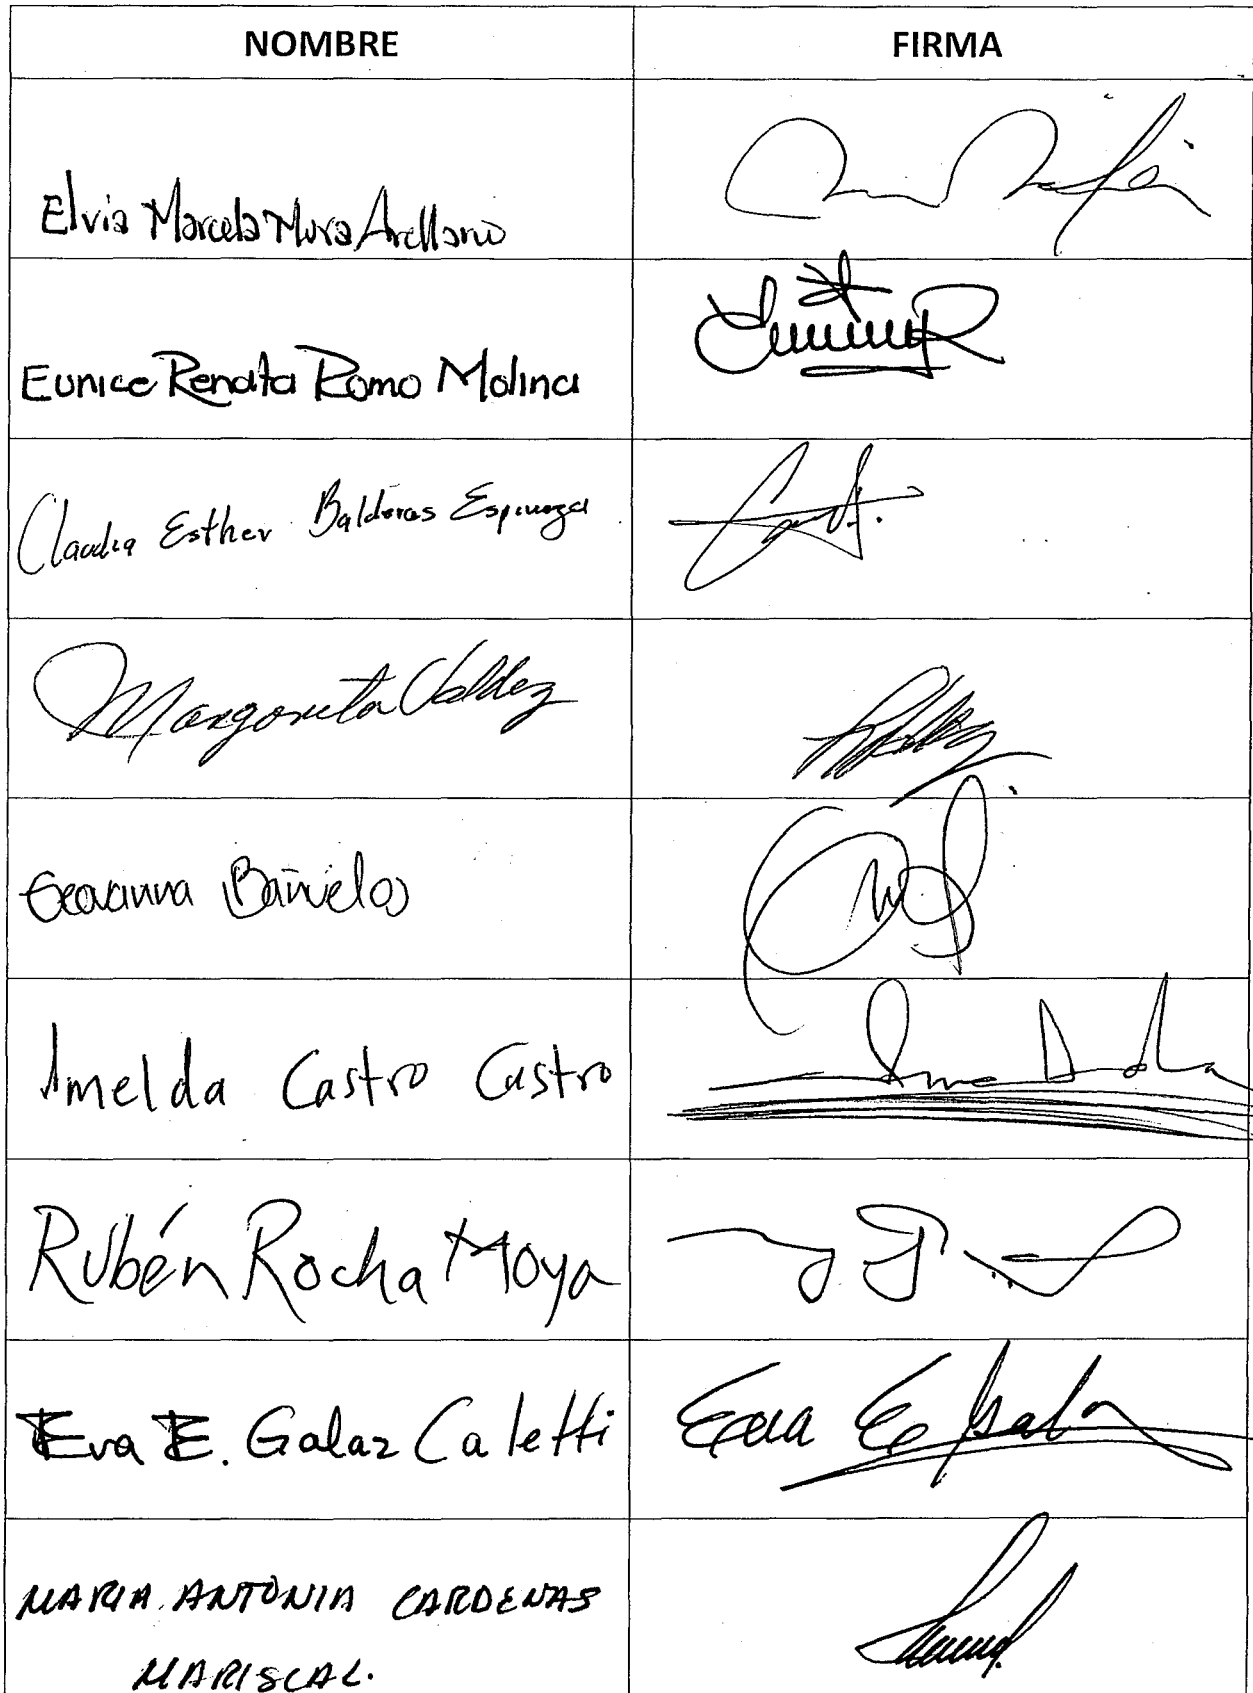 NOMBRE FIRMA
Elvia Marcela Mora Arellano
Eunice Renata Romo Molina
Claudia Esther Balderas Espinoza
Margarita Valdez
Geovanna Bañuelos
Imelda Castro Castro
Rubén Rocha Moya
Eva E. Galaz Caletti Eva E Galaz
MARIA ANTONIA CARDENAS
MARISCAL.